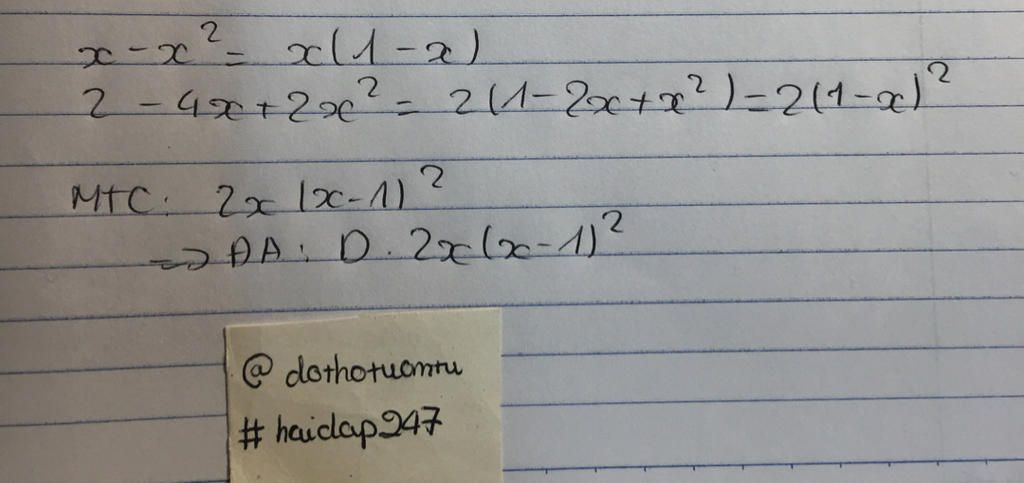 x - x² = x(1 - x)
2 - 4x + 2x² = 2(1 - 2x + x²) = 2(1 - x)²
MTC: 2x (x - 1)²
=> ĐA: D. 2x(x - 1)²
@ dothotuomtu
# haidap247